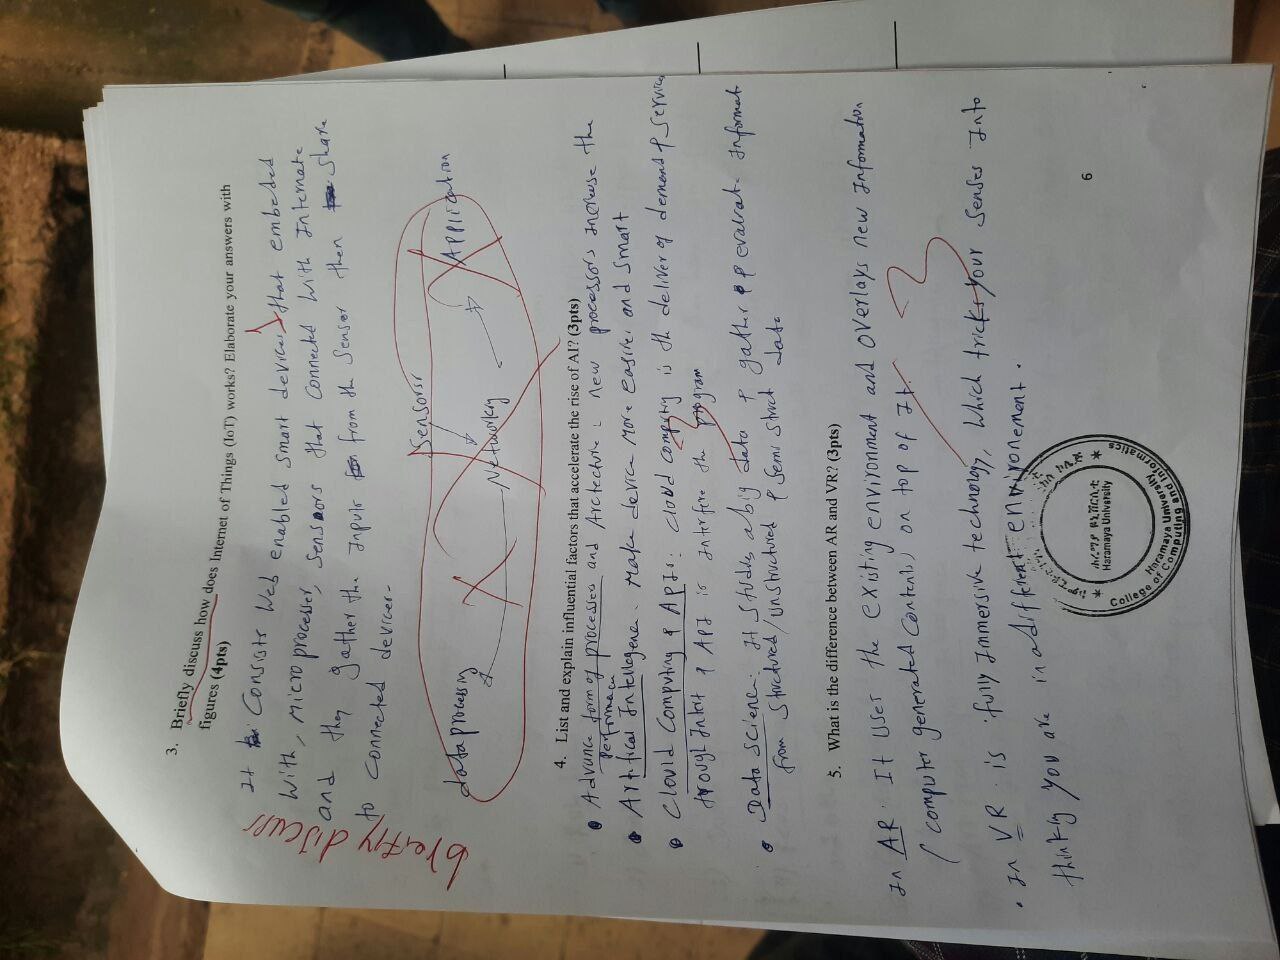 3. Briefly discuss how does Internet of Things (IoT) works? Elaborate your answers with
figures (4pts)
It Consists Web enabled smart devices that embedded
With, micro processer, sensors that connected with Internate
and they gather the inputs from the sensor then share
to connected devices.
briefly discuss
Sensorsr
data processing Networking Application
4. List and explain influential factors that accelerate the rise of AI? (3pts)
Advance form of processes and Arctechitre: new processors increase the
performance
Artifical Intellegence. make device more easier and smart
Clovld Computing & APIs: cloud computing is th deliver of demand & service
through & API is interfire the program
Data science: it studies a big data & gather & evaluate informat
from structured/unstructured & semi struct data
5. What is the difference between AR and VR? (3pts)
In AR. It Uses the existing environment and overlays new information
/computer generated contents on top of It.
3
• In VR is fully immersive technology, which tricks your senses into
thinking you are in a different environement.
6
ሐረማያ ዩኒቨርሲቲ
Haramaya University
Haramaya University
College of Computing and Informatics